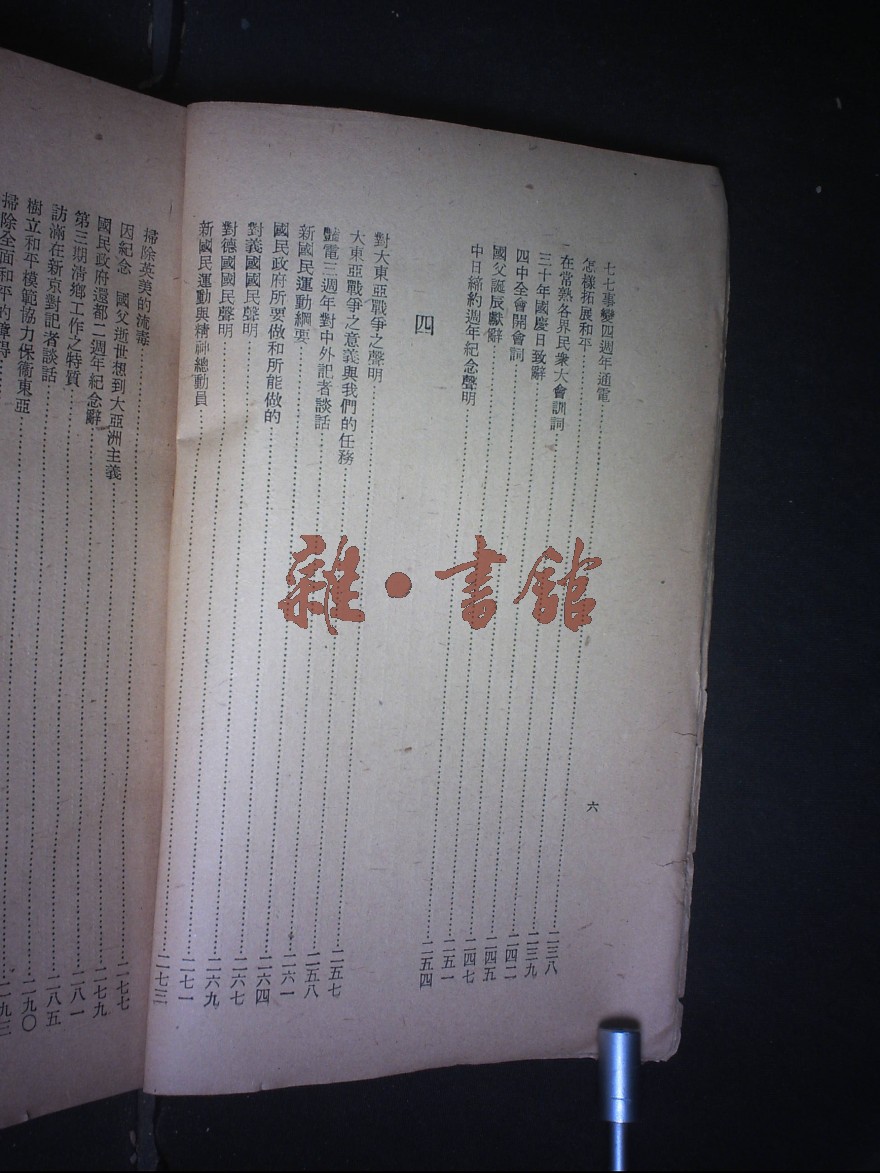 六
七七事變四週年通電……二三八
怎樣拓展和平……二三九
在常熟各界民衆大會訓詞……二四二
三十年國慶日致辭……二四五
四中全會開會詞……二四七
國父誕辰獻辭……二五一
中日締約週年紀念聲明……二五四
四
對大東亞戰爭之聲明……二五七
大東亞戰爭之意義與我們的任務……二五八
豔電三週年對中外記者談話……二六一
新國民運動綱要……二六四
國民政府所要做和所能做的……二六七
對義國國民聲明……二六九
對德國國民聲明……二七一
新國民運動與精神總動員……二七三
掃除英美的流毒……二七七
因紀念 國父逝世想到大亞洲主義……二七九
國民政府還都二週年紀念辭……二八一
第三期清鄉工作之特質……二八五
訪滿在新京對記者談話……二九〇
樹立和平模範協力保衞東亞……二九三
掃除全面和平的
雜·書館